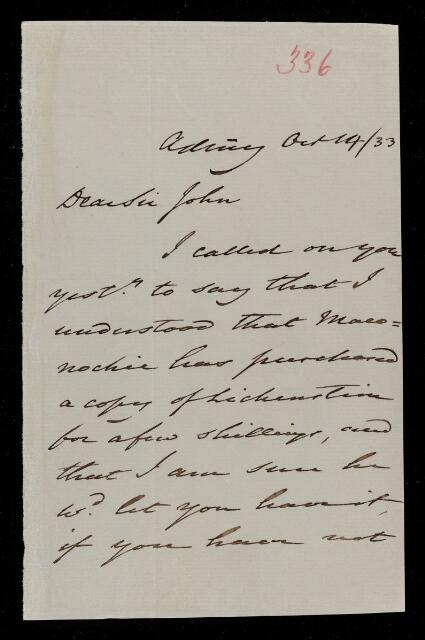 336
Admty Oct 14/33
Dear Sir John
I called on you
yesty. to say that I
understood that Maco=
nochie has purchased
a copy of Lichenstein
for a few shillings, and
that I am sure he
wd. let you have it,
if you have not